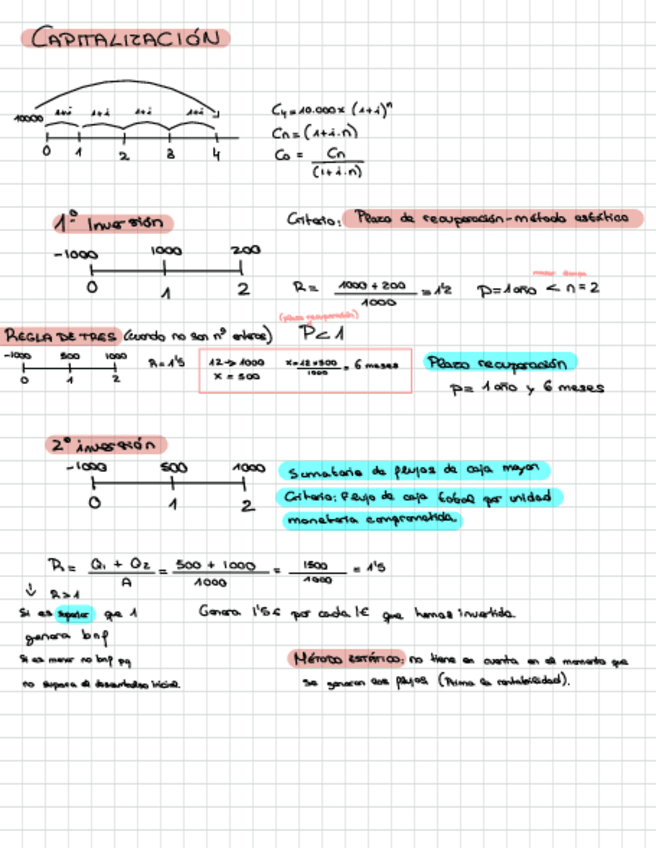 CAPITALIZACIÓN
10000 1+i 1+i 1+i 1+i
0 1 2 3 4
C4=10.000x (1+i)^n
Cn=(1+i.n)
Co = Cn / (1+i.n)
1º Inversión
Criterio: Plazo de recuperación-método estático
-1000 1000 200
0 1 2
R = 1000 + 200 / 1000 = 1'2
P=1 año < n=2
(plazo recuperación)
P<1
REGLA DE TRES (cuando no son nº enteros)
-1000 500 1000
0 1 2
R=1'5
12 → 1000
x = 500
x=12x500 / 1000 = 6 meses
Plazo recuperación
P= 1 año y 6 meses
2º inversión
-1000 500 1000
0 1 2
Sumatorio de flujos de caja mayor
Criterio: Flujo de caja total por unidad
monetaria comprometida.
R = Q1 + Q2 / A = 500 + 1000 / 1000 = 1500 / 1000 = 1'5
↓ R>1
Si es superior que 1
genera bnf
Si es menor no bnf pq
no supera el desembolso inicial.
Genera 1'5€ por cada 1€ que hemos invertido.
MÉTODO ESTÁTICO: no tiene en cuenta en el momento que
se generan los flujos (Prima la rentabilidad).